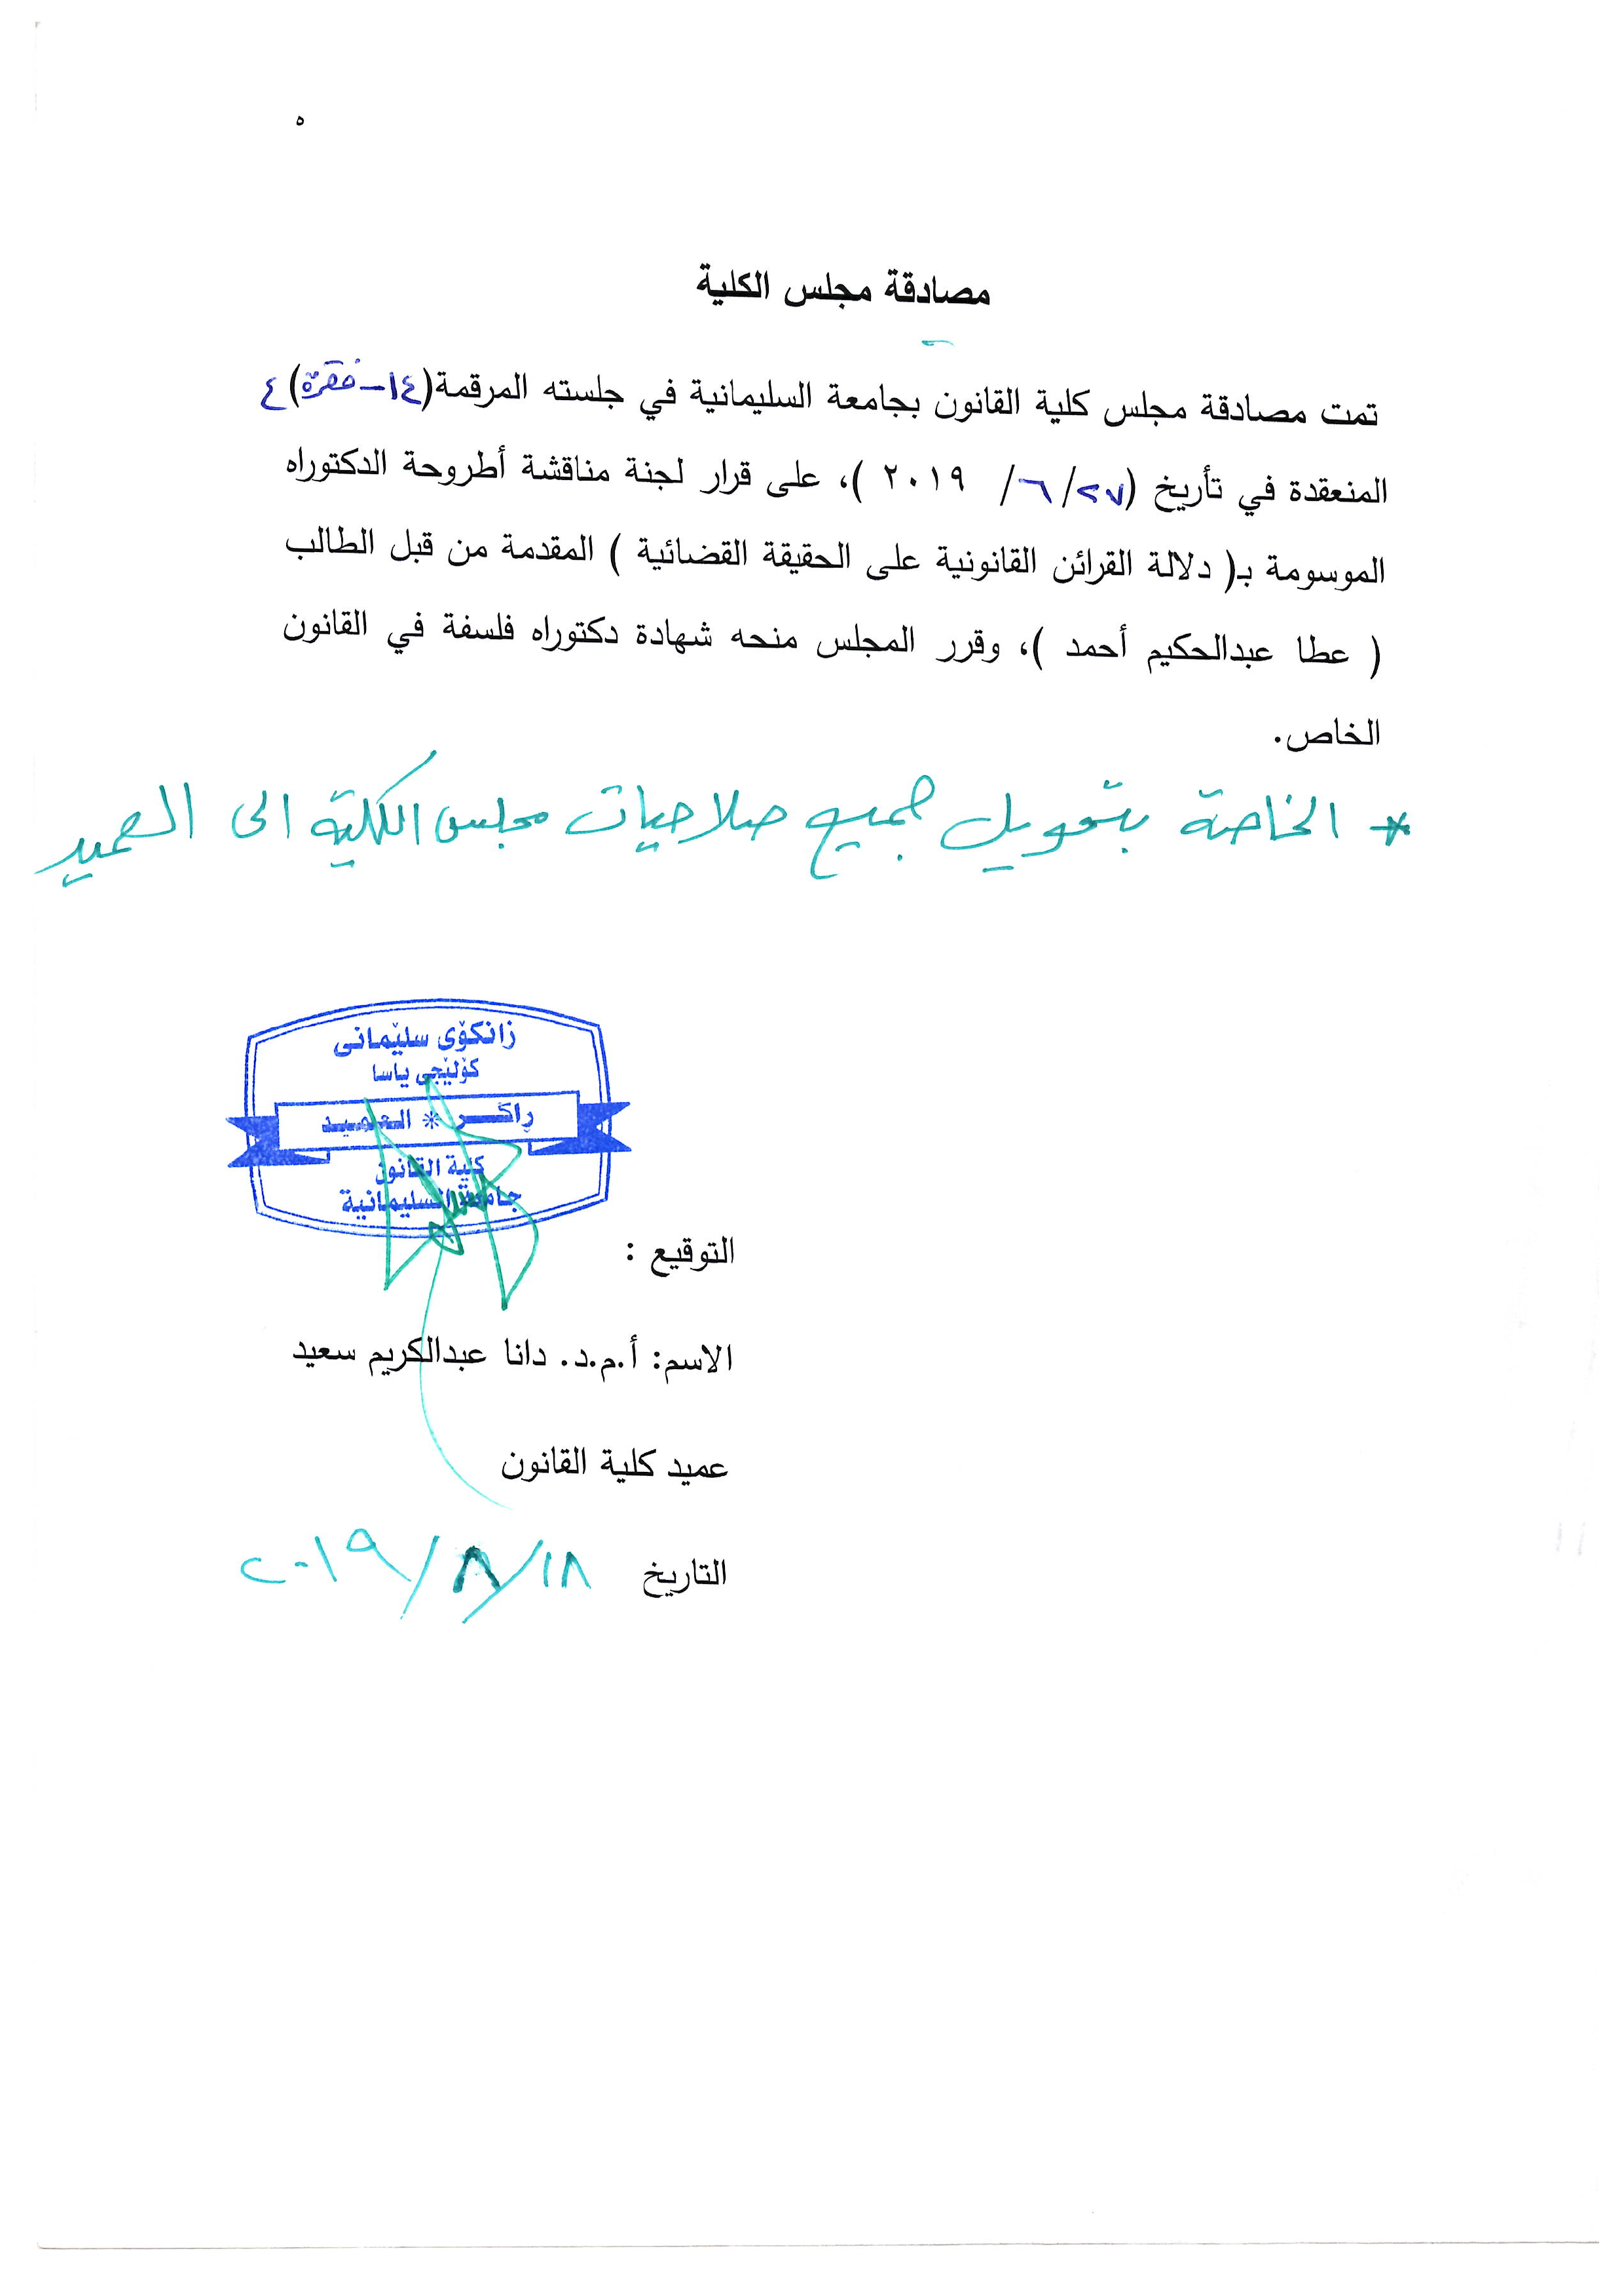 ه
مصادقة مجلس الكلية
تمت مصادقة مجلس كلية القانون بجامعة السليمانية في جلسته المرقمة(١٤-فقرة)٤
المنعقدة في تأريخ (٢٧/٦/ ٢٠١٩ )، على قرار لجنة مناقشة أطروحة الدكتوراه
الموسومة بـ( دلالة القرائن القانونية على الحقيقة القضائية ) المقدمة من قبل الطالب
( عطا عبدالحكيم أحمد )، وقرر المجلس منحه شهادة دكتوراه فلسفة في القانون
الخاص.
* الخاصة بتخويل جميع صلاحيات مجلس الكلية الى العميد
زانكۆى سلێمانى
كۆلێجى ياسا
ڕاگـــر * العميد
كلية القانون
جامعة السليمانية
التوقيع :
الاسم: أ.م.د. دانا عبدالكريم سعيد
عميد كلية القانون
التاريخ ١٨/٨/٢٠١٩